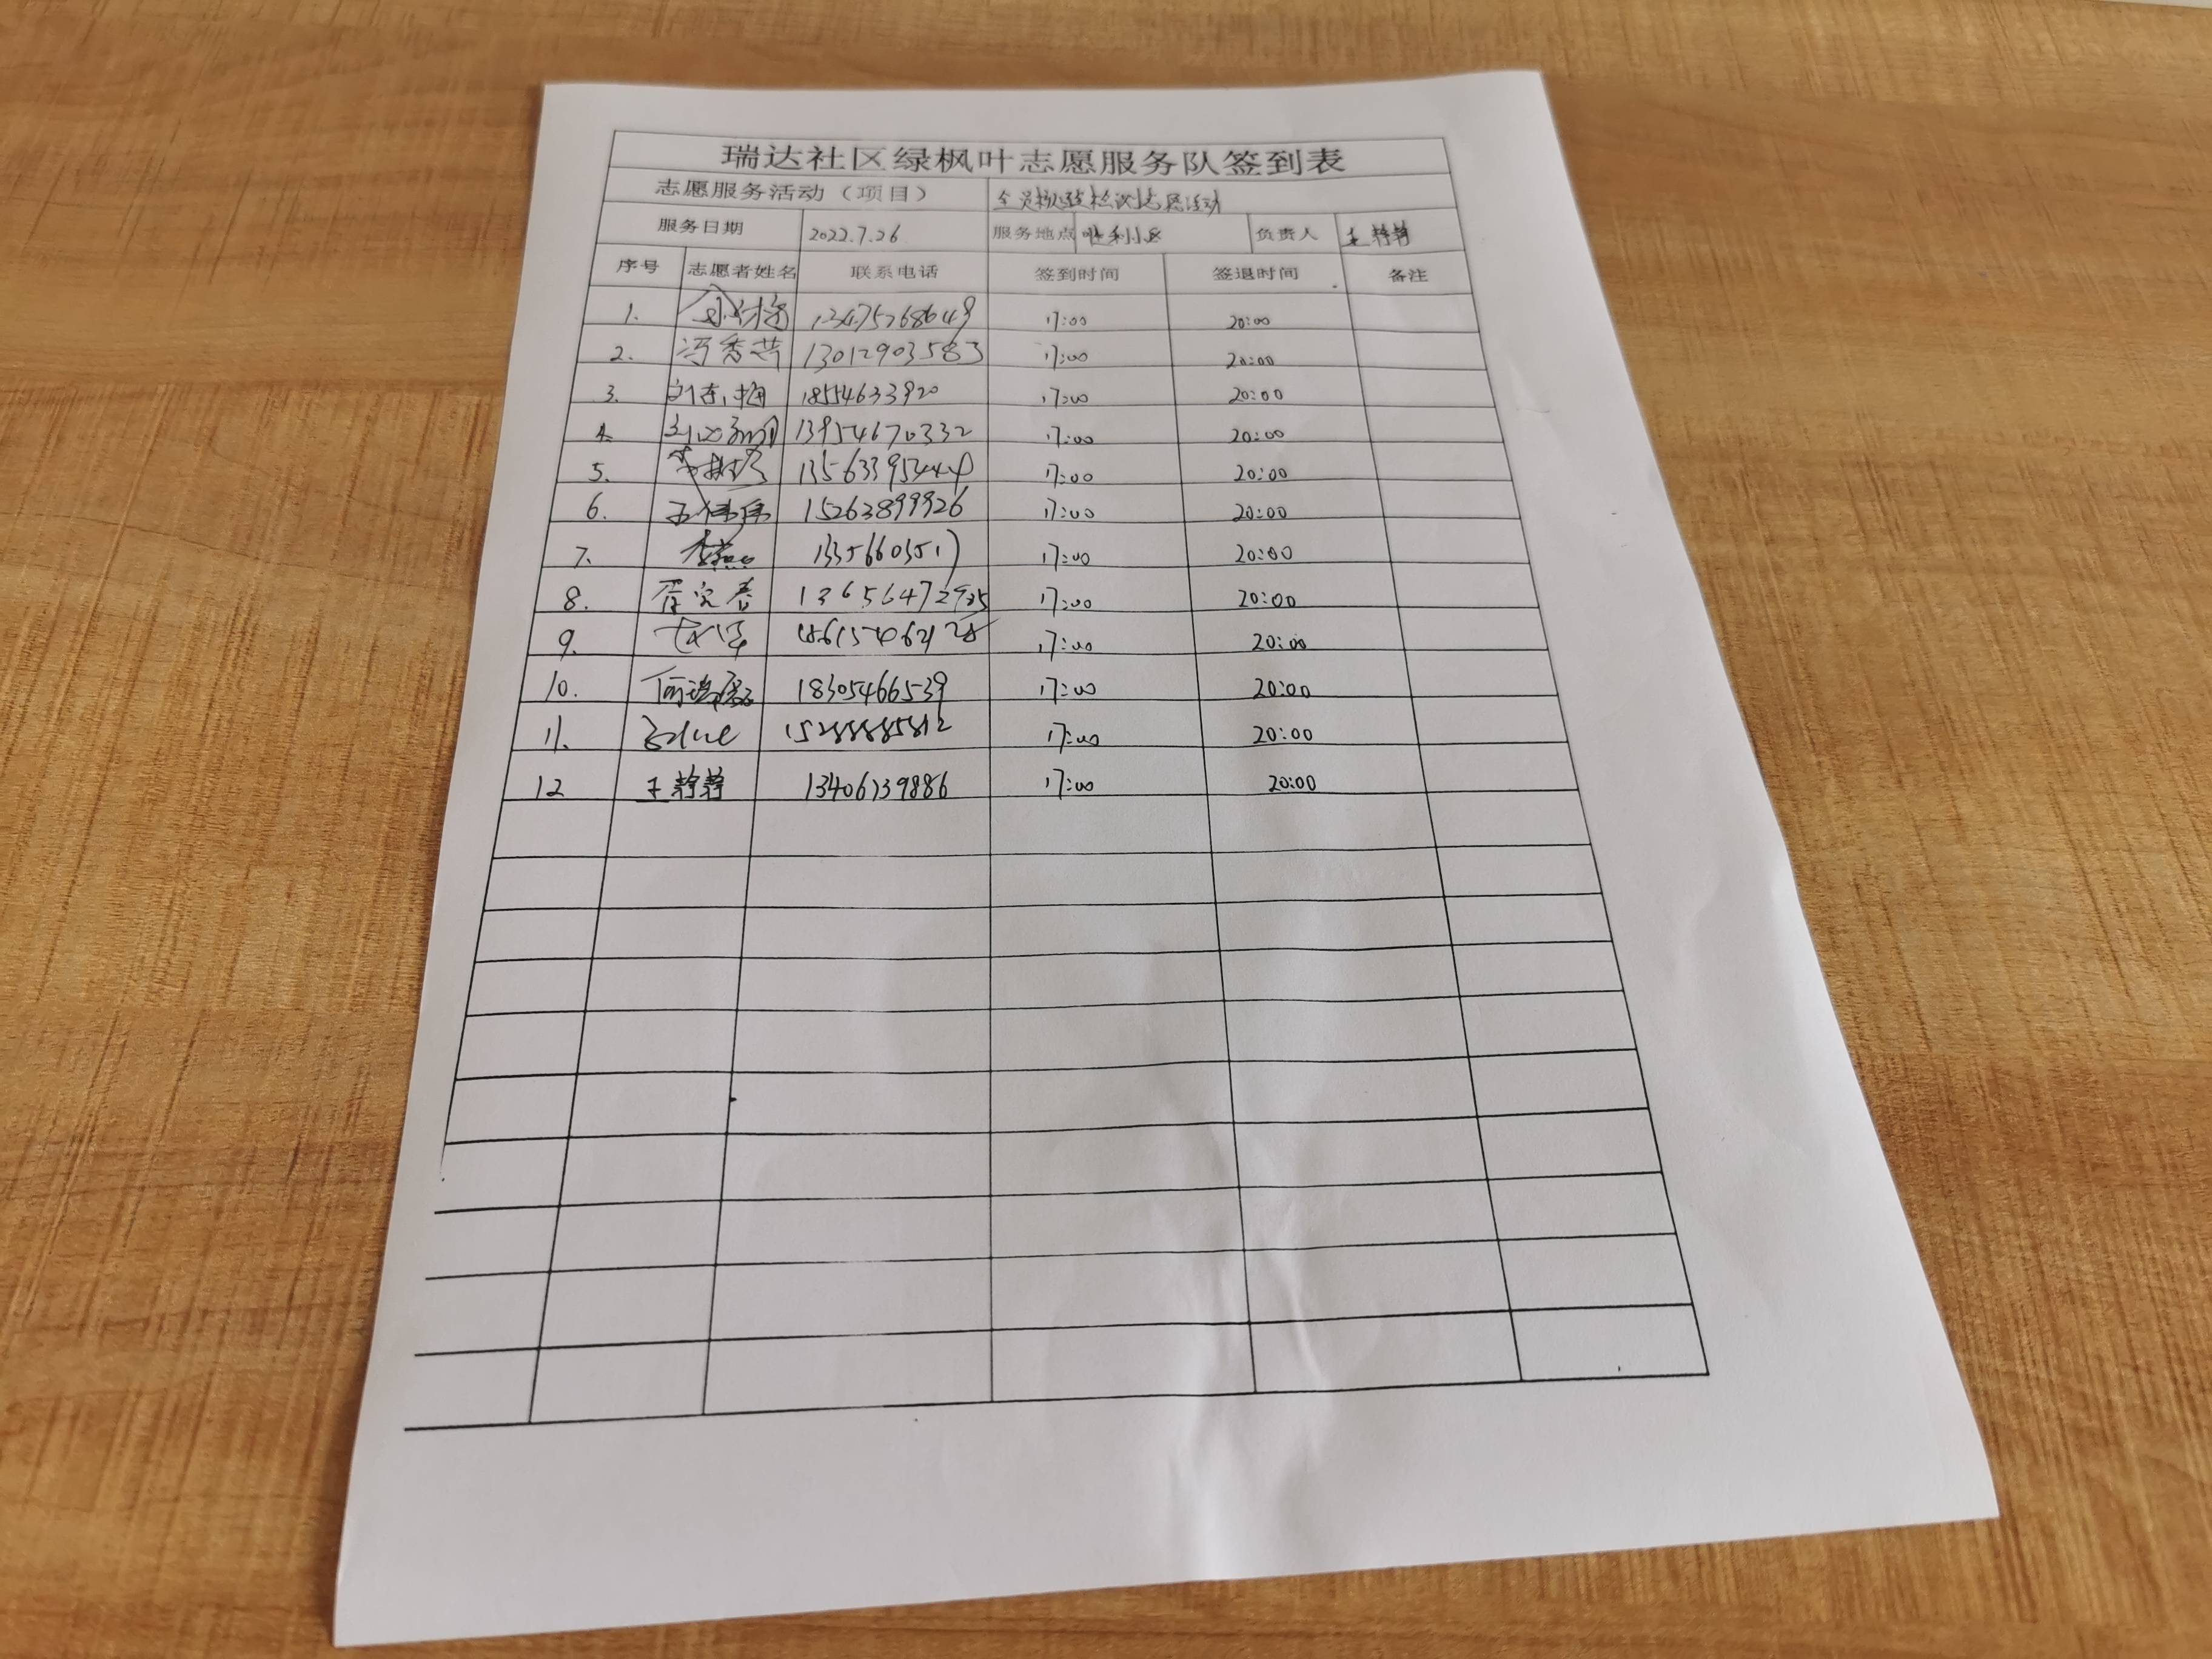 瑞达社区绿枫叶志愿服务队签到表
志愿服务活动（项目） 全员核酸检测志愿活动
服务日期 2022.7.26 服务地点 胜利小区 负责人 王静静
序号 志愿者姓名 联系电话 签到时间 签退时间 备注
1. 13475268649 17:00 20:00
2. 冯秀芹 13012903583 17:00 20:00
3. 刘志梅 18554633920 17:00 20:00
4. 13954670332 17:00 20:00
5. 17:00 20:00
6. 王伟伟 15263899926 17:00 20:00
7. 17:00 20:00
8. 17:00 20:00
9. 17:00 20:00
10. 18305466539 17:00 20:00
11. 17:00 20:00
12 王静静 13406139886 17:00 20:00